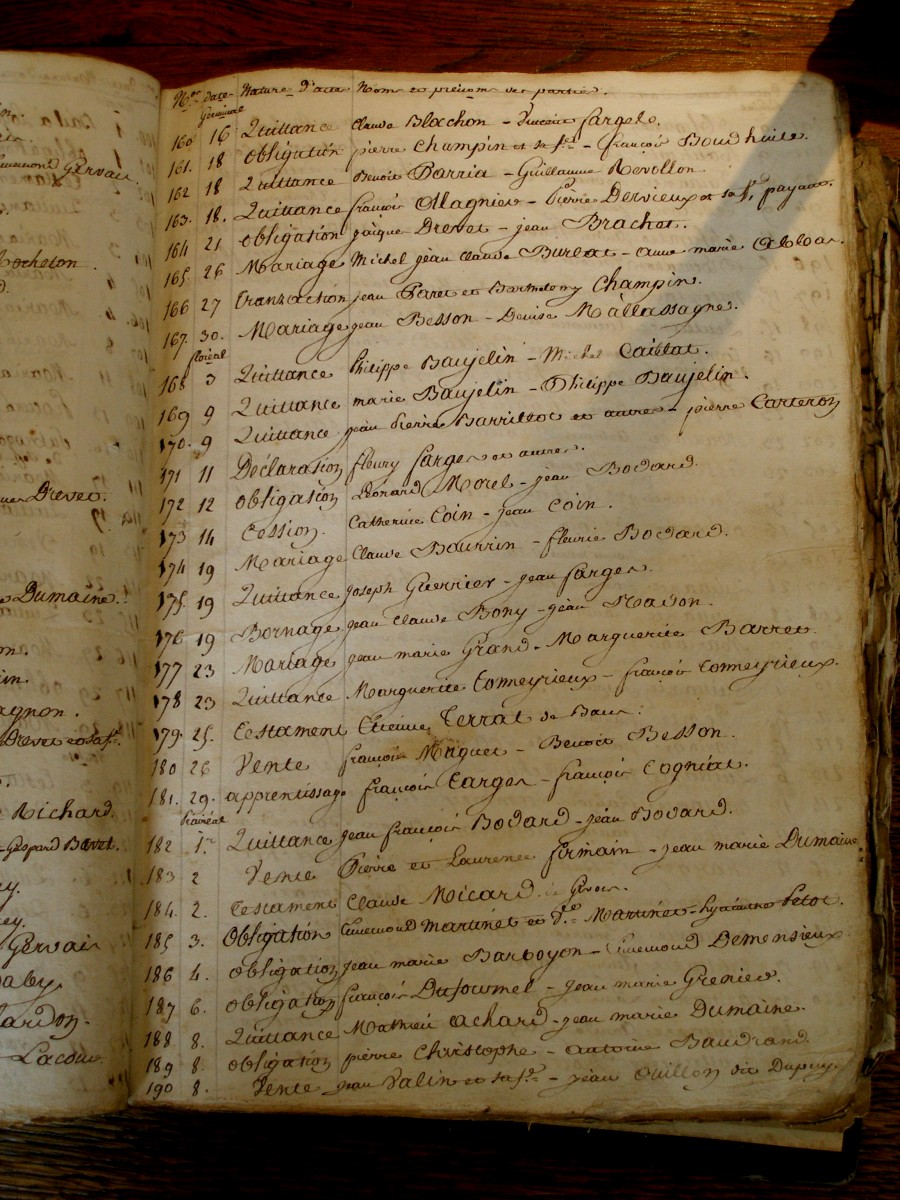 Gervais.
Rocheton.
Drevet.
Dumaine.
Drevet et sa f.e
Richard.
Gaspard Bavet.
Gervais
Lardon.
Lacour
N.os date Nature d'actes Noms et prénoms des parties.
Germinal
160 16 Quittance Claude Blachon - Vincent farges.
161. 18 Obligation pierre Champin et sa f.e - françois Boudhuile.
162 18 Quittance Benoit Parria - Guillaume Revollon
163. 18. Quittance françois Magnier - Pierre Dervieux et sa f.e payant.
164 21 Obligation jaique Drevet - jean Brachet.
165 26 Mariage Michel jean Claude Burlat - anne marie
166 27 tranzaction jean Paret et Barthelemy Champin.
167. 30. Mariage jean Besson - Denise Mallassagne.
floréal
168 3 Quittance Philippe Baujelin - Michel Caillat.
169 9 Quittance marie Baujelin - Philippe Baujelin.
170. 9 Quittance jean Pierre Barrillot et autres - pierre Carteron
171 11 Déclaration fleury farges et autres.
172 12 Obligation Léonard Morel - jean Bodard.
173 14 Cession. Catherine Coin - jean Coin.
174 19 Mariage Claude Baurrin - fleurie Bodard.
175. 19 Quittance joseph Guerrier - jean farges.
176 19 Bornage jean Claude Bony - jean
177 23 Mariage jean marie Grand - Marguerite Barret.
178 23 Quittance Marguerite Conneyrieux - françois Conneyrieux.
179. 25. testament Etienne Terrat de
180 26 Vente françois Maguet - Benoit Besson.
181. 29. apprentissage françois farges - françois Cogniat.
Prairéal
182 1.er Quittance jean françois Bodard - jean Bodard.
183 2 Vente Pierre et Laurence firmain - jean marie Dumaine
184. 2. testament Claude Micard de
185 3. Obligation Ennemond Martinet et d.e Martinet - hyacinthe
186 4. Obligation jean marie Barboyon - Ennemond Demensieux
187 6. Obligation françois Dufournel - jean marie Grenier.
188 8. Quittance Mathieu Achard - jean marie Dumaine.
189 8. Obligation pierre Christophe - antoine Baudrand.
190 8. Vente jean Valin et sa f.e - jean Ouillon dit Dupuy.